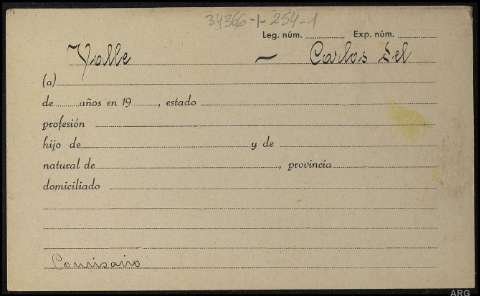 34366-1-254-1
Leg. núm. Exp. núm.
Valle — Carlos Del
(a)
de años en 19 , estado
profesión
hijo de y de
natural de , provincia
domiciliado
Comisario
ARG